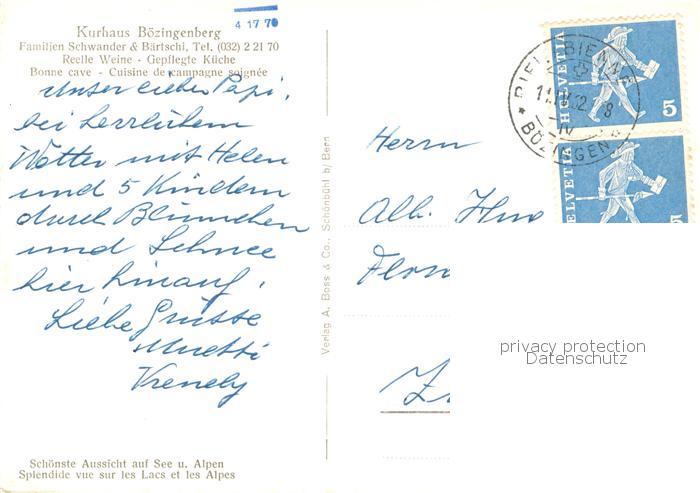 4 17 70
Kurhaus Bözingenberg
Familien Schwander & Bärtschi, Tel. (032) 2 21 70
Reelle Weine - Gepflegte Küche
Bonne cave - Cuisine de campagne soignée
Unser lieber Papi,
bei herrlichem
Wetter mit Helen
und 5 Kindern
durch Blümchen
und Schnee
hier hinauf.
Liebe Grüsse
Muetti
Vrenely
Schönste Aussicht auf See u. Alpen
Splendide vue sur les Lacs et les Alpes
Verlag A. Boss & Co., Schönbühl b/Bern
HELVETIA
5
HELVETIA
5
BIEL-BIENNE
BÖZINGEN
Herrn
Alb.
privacy protection
Datenschutz